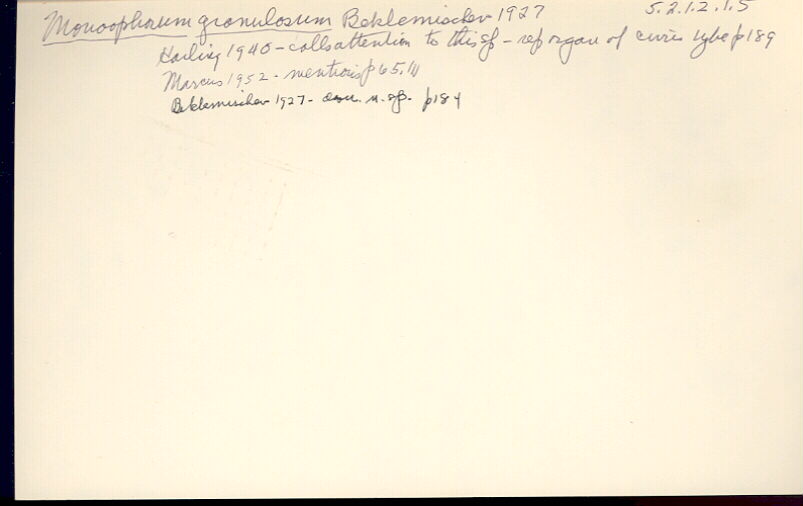 Monoophorum granulosum Beklemischev 1927 5.2.1.2.1.5
Karling 1940 - calls attention to this sp - rep organ of cirrus type p189
Marcus 1952 - mentions p65, 111
Beklemischev 1927 - descr. n. sp. p184